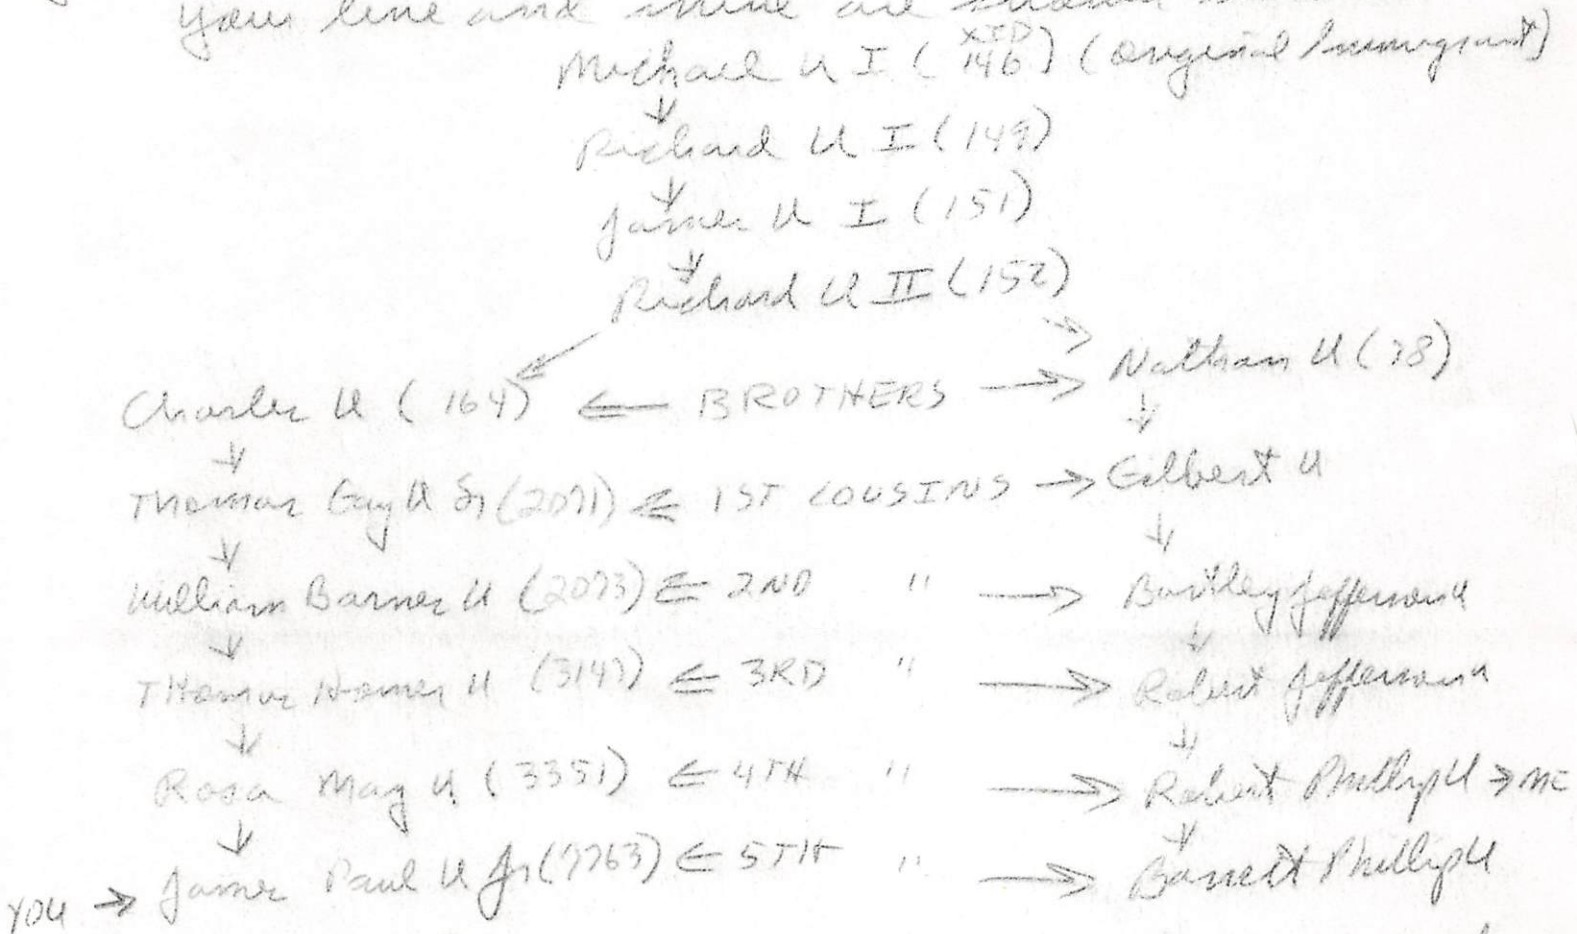 your line and mine are
XID
Michael U I (146) (Original Immigrant)
↓
Richard U I (149)
↓
James U I (151)
↓
Richard U II (152)
Charles U (164) ← BROTHERS → Nathan U (78)
↓ ↓
Thomas Guy U Sr (2071) ← 1ST COUSINS → Gilbert U
↓ ↓
William Barner U (2073) ← 2ND " → Bartley Jefferson U
↓ ↓
Thomas Homer U (3147) ← 3RD " → Robert Jefferson U
↓ ↓
Rosa May U (3351) ← 4TH " → Robert Phillip U → ME
↓ ↓
YOU → James Paul U Jr (7763) ← 5TH " → Barrett Phillip U